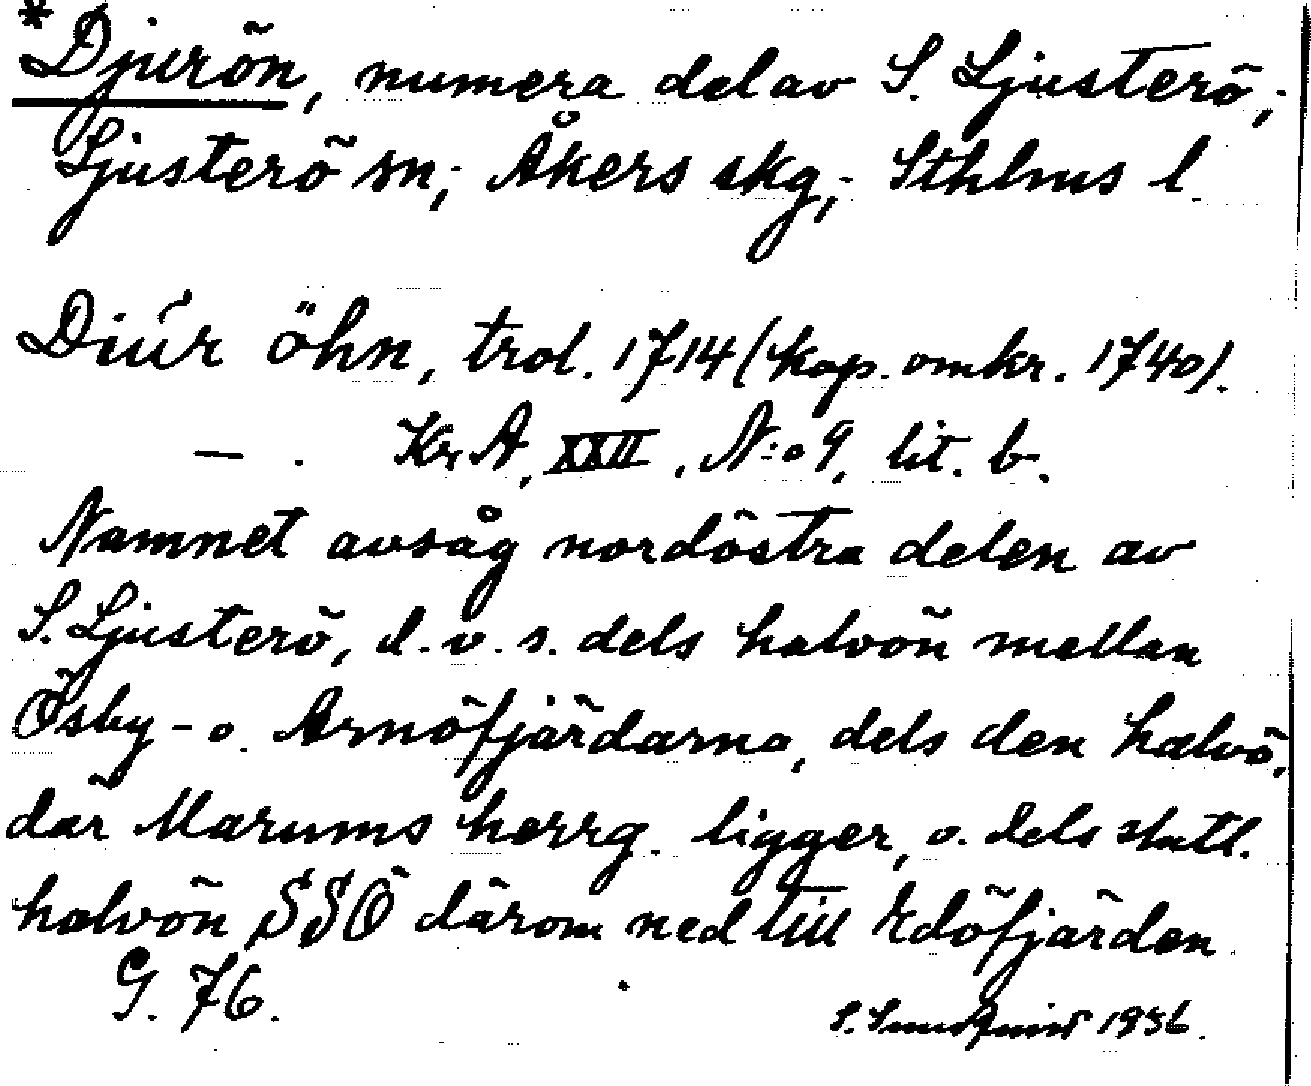 *Djurön, numera del av S. Ljusterö,
Ljusterö sn, Åkers skg, Sthlms l.
Diúr öhn, trol. 1714 (kop. omkr. 1740).
— . KrA, XXII, N:o 9, lit. b.
Namnet avsåg nordöstra delen av
S. Ljusterö, d.v.s. dels halvön mellan
Ösby- o. Arnöfjärdarna, dels den halvö,
där Marums herrg. ligger, o. dels slutl.
halvön SSÖ därom ned till Edöfjärden
G. 76.
S. 1936.